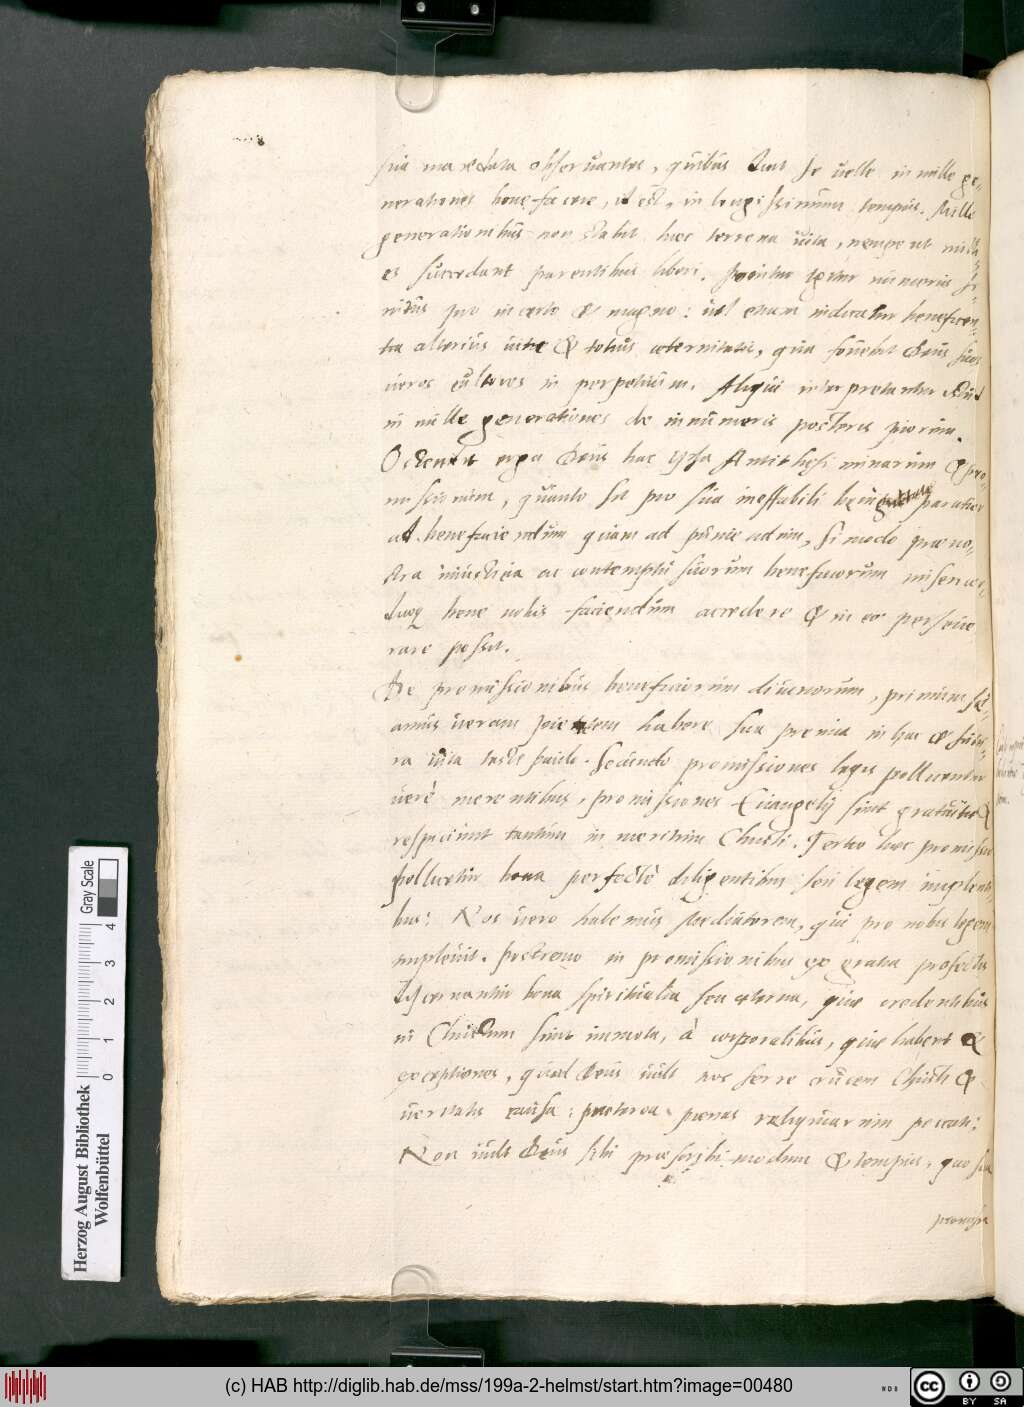 sua mandata observantes, quibus dicit se velle in mille ge-
nerationes benefacere, id est, in longissimum tempus. Mille
generationibus non stabit haec terrena vita, nempe ut mille
es succedant parentibus liberi. Ponitur igitur numerus fi-
nitus pro incerto & magno: vel etiam indicatur beneficen-
tia alterius vitae & totius aeternitatis, qua fovebit Deus suos
veros cultores in perpetuum. Aliqui interpretantur
in mille generationes de innumeris posteris piorum.
Ostendit ergo Deus hac ipsa Antithesi minarum & pro-
missionum, quanto sit pro sua ineffabili benignitate paratior
ad benefaciendum quam ad puniendum, si modo prae no-
stra iniustitia ac contemptu suorum beneficiorum
bene nobis faciendum accedere & in eo perseve
rare possit.
De promissionibus beneficiorum divinorum, primum sci-
amus veram pietatem habere sua premia in hac & futu-
ra vita teste paulo. Secundo promissiones legis pollicentur
verè merentibus, promissiones Evangelij sunt gratuitae &
respiciunt tantum in meritum Christi. Tertio haec promissio
pollicetur bona perfectè diligentibus seu legem implenti-
bus: Nos vero habemus Mediatorem, qui pro nobis legem
implevit. Postremo in promissionibus ex gratia profectis
discernantur bona spiritualia seu aeterna, quae credentibus
in Christum sunt immota, à corporalibus, quae habent &
exceptiones, quòd Deus vult nos ferre crucem Christi &
veritatis causa: praeterea poenas reliquiarum peccati:
Non vult Deus sibi praescribi modum & tempus, quo sua
promissa
(c) HAB http://diglib.hab.de/mss/199a-2-helmst/start.htm?image=00480
Herzog August Bibliothek
Wolfenbüttel
Gray Scale
0 1 2 3 4
NDB
CC BY SA